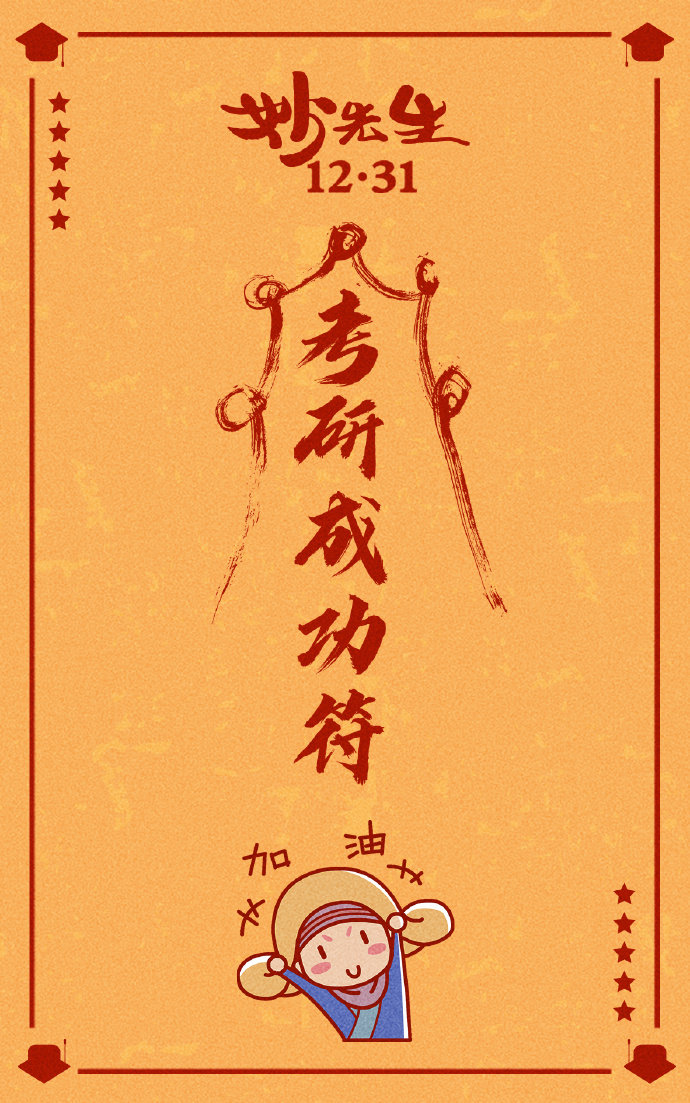 妙先生
12·31
考研成功符
加油